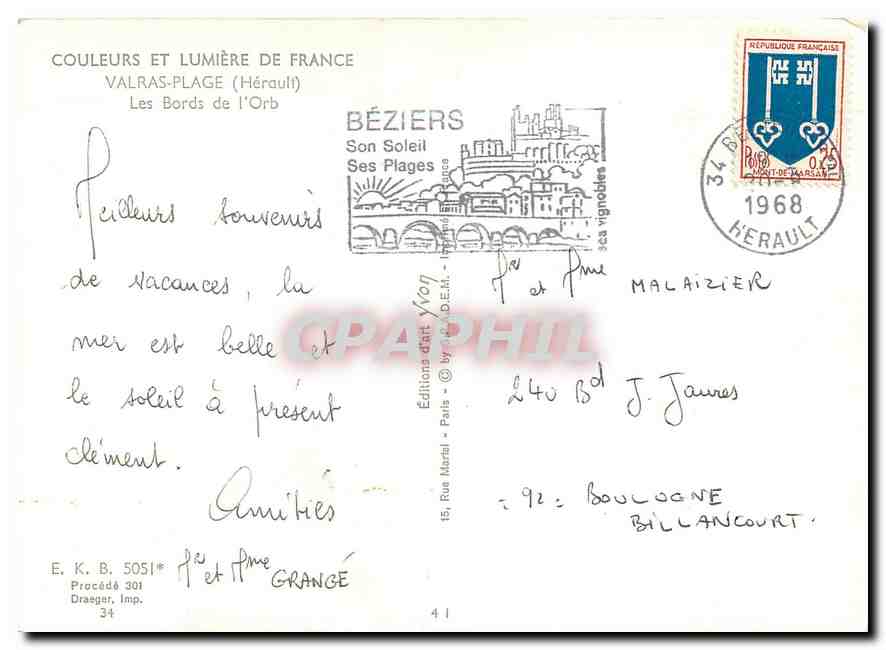 COULEURS ET LUMIÈRE DE FRANCE
VALRAS-PLAGE (Hérault)
Les Bords de l'Orb
BÉZIERS
Son Soleil
Ses Plages
ses vignobles
RÉPUBLIQUE FRANÇAISE
Postes 0,25
MONT-DE-MARSAN
34
1968
HERAULT
Meilleurs souvenirs
de vacances, la
mer est belle et
le soleil à présent
clément.
Amitiés
Mr et Mme GRANGÉ
E. K. B. 5051*
Procédé 301
Draeger, Imp.
34
41
Éditions d'art Yvon
15, Rue Martel - Paris - © by S.P.A.D.E.M. - Imprimé en France
Mr et Mme MALAIZIER
240 Bd J. Jaures
- 92 - BOULOGNE
BILLANCOURT.
CPAPHIL